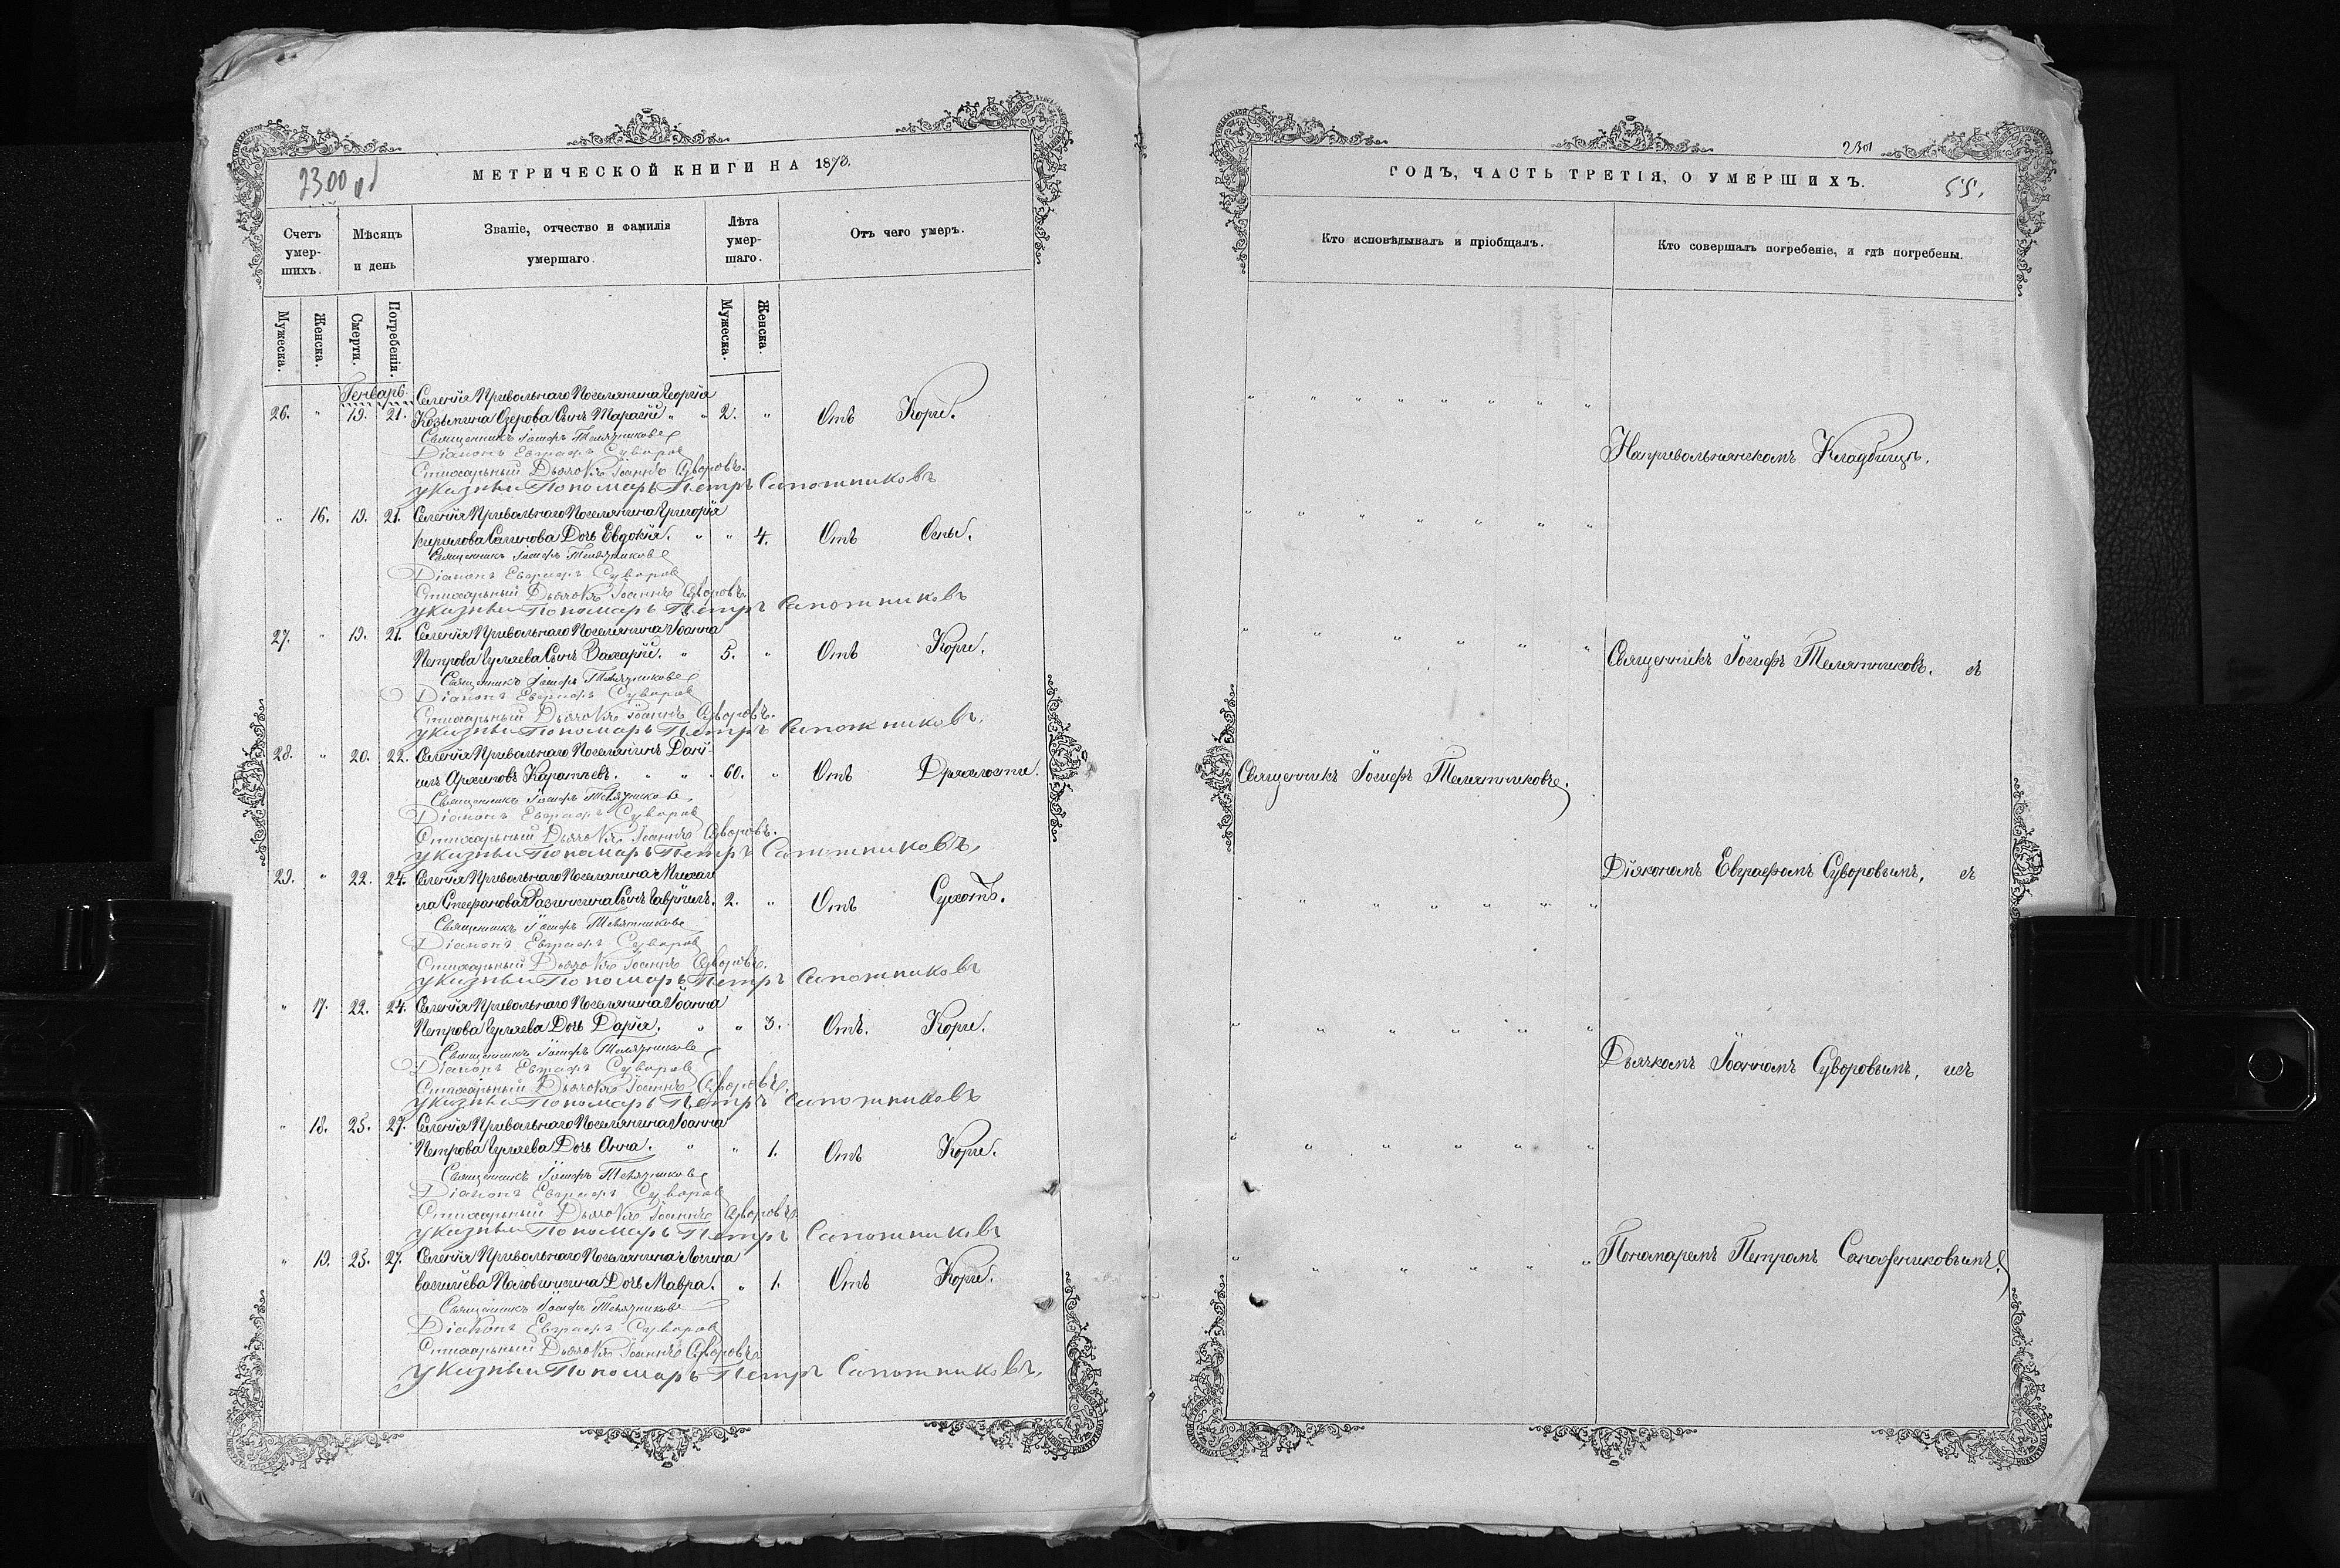 2300 об
МЕТРИЧЕСКОЙ КНИГИ НА 1873.
Счетъ умер-шихъ.
Мѣсяцъ и день
Званіе, отчество и фамилія умершаго.
Лѣта умер-шаго.
Отъ чего умеръ.
Мужеска.
Женска.
Смерти.
Погребенія.
Мужеска.
Женска.
Генварь.
Селенія Привольнаго Поселянина Георгія
26. " 19. 21. Козьмина Озерова Сынъ Тарасій " " 2. " Отъ Кори.
Священникъ Іосифъ Телятниковъ
Діаконъ Евграфъ Суворов
Стихарный Дьячокъ Іоаннъ Суворовъ.
указный Пономарь Петръ Сапожниковъ
" 16. 19. 21. Селенія Привольнаго Поселянина Григорія
Кирилова Дочь Евдокія. " " 4. Отъ Оспы.
Священникъ Іосифъ Телятниковъ
Діаконъ Евграфъ Суворов
Стихарный Дьячокъ Іоаннъ Суворовъ.
указный Пономарь Петръ Сапожниковъ
27. " 19. 21. Селенія Привольнаго Поселянина Іоанна
Петрова Гуляева Сынъ Захарій. " 5. " Отъ Кори.
Священникъ Іосифъ Телятниковъ
Діаконъ Евграфъ Суворов
Стихарный Дьячокъ Іоаннъ Суворовъ.
указный Пономарь Петръ Сапожниковъ.
28. " 20. 22. Селенія Привольнаго Поселянинъ Дані
илъ Архиповъ " " 60. " Отъ Дряхлости.
Священникъ Іосифъ Телятниковъ
Діаконъ Евграфъ Суворов
Стихарный Дьячокъ Іоаннъ Суворовъ.
указный Пономарь Петръ Сапожниковъ
29. " 22. 24. Селенія Привольнаго Поселянина Михаи
ла Стефанова Разинкина Сынъ Гавріилъ. 2. " Отъ Сухотъ.
Священникъ Іосифъ Телятниковъ
Діаконъ Евграфъ Суворов
Стихарный Дьячокъ Іоаннъ Суворовъ.
указный Пономарь Петръ Сапожниковъ
" 17. 22. 24. Селенія Привольнаго Поселянина Іоанна
Петрова Гуляева Дочь Дарія. " " 3. Отъ. Кори.
Священникъ Іосифъ Телятниковъ
Діаконъ Евграфъ Суворов
Стихарный Дьячокъ Іоаннъ Суворовъ.
указный Пономарь Петръ Сапожниковъ
" 18. 25. 27. Селенія Привольнаго Поселянина Іоанна
Петрова Гуляева Дочь Анна. " " 1. Отъ Кори.
Священникъ Іосифъ Телятниковъ
Діаконъ Евграфъ Суворов
Стихарный Дьячокъ Іоаннъ Суворовъ
указный Пономарь Петръ Сапожниковъ
" 19. 25. 27. Селенія Привольнаго Поселянина Логина
Васильева Половинкина Дочь Мавра. " 1. Отъ Кори.
Священникъ Іосифъ Телятниковъ
Діаконъ Евграфъ Суворов
Стихарный Дьячокъ Іоаннъ Суворовъ
указный Пономарь Петръ Сапожниковъ.
2301
ГОДЪ, ЧАСТЬ ТРЕТІЯ, О УМЕРШИХЪ.
55.
Кто исповѣдывалъ и пріобщалъ.
Кто совершалъ погребеніе, и гдѣ погребены.
На привольнянскомъ Кладбищѣ.
Священникъ Іосифъ Телятниковъ. съ
Священникъ Іосифъ Телятниковъ.
Діякономъ Евграфомъ Суворовымъ, съ
Дьячкомъ Іоанномъ Суворовымъ, исъ
Пономаремъ Петромъ Сапожниковымъ.